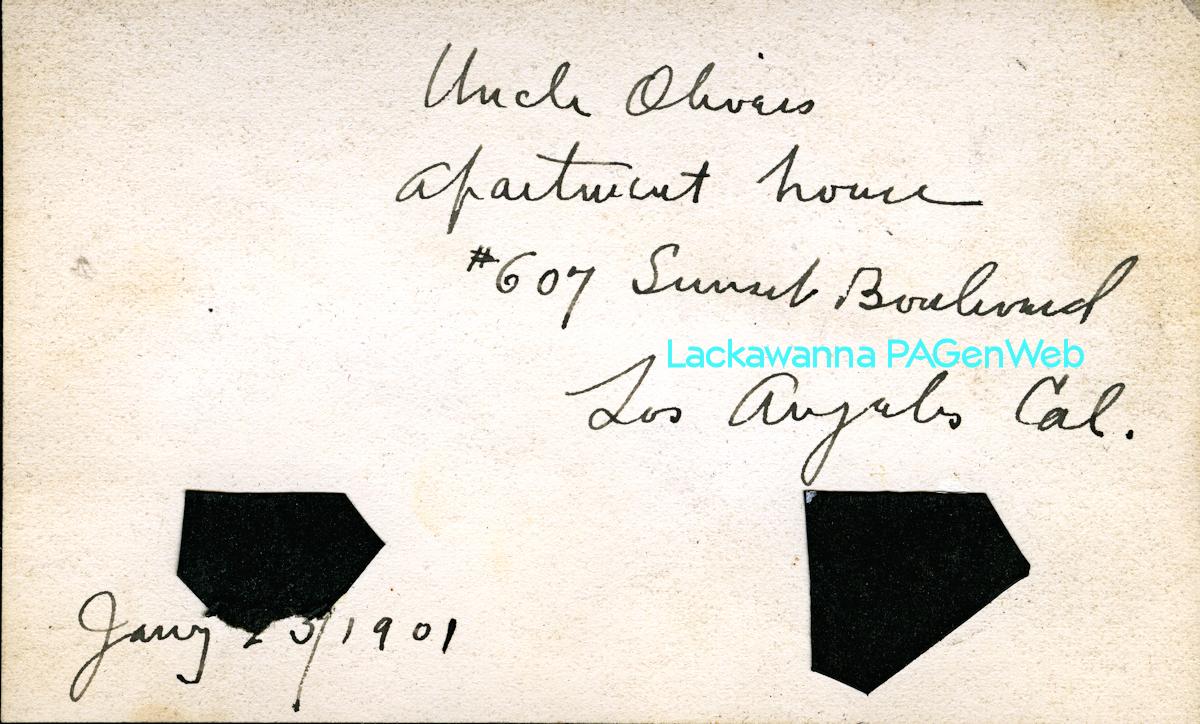 Uncle Olivers
apartment house
#607 Sunset Boulevard
Lackawanna PAGenWeb
Los Angeles Cal.
Jany 23/1901